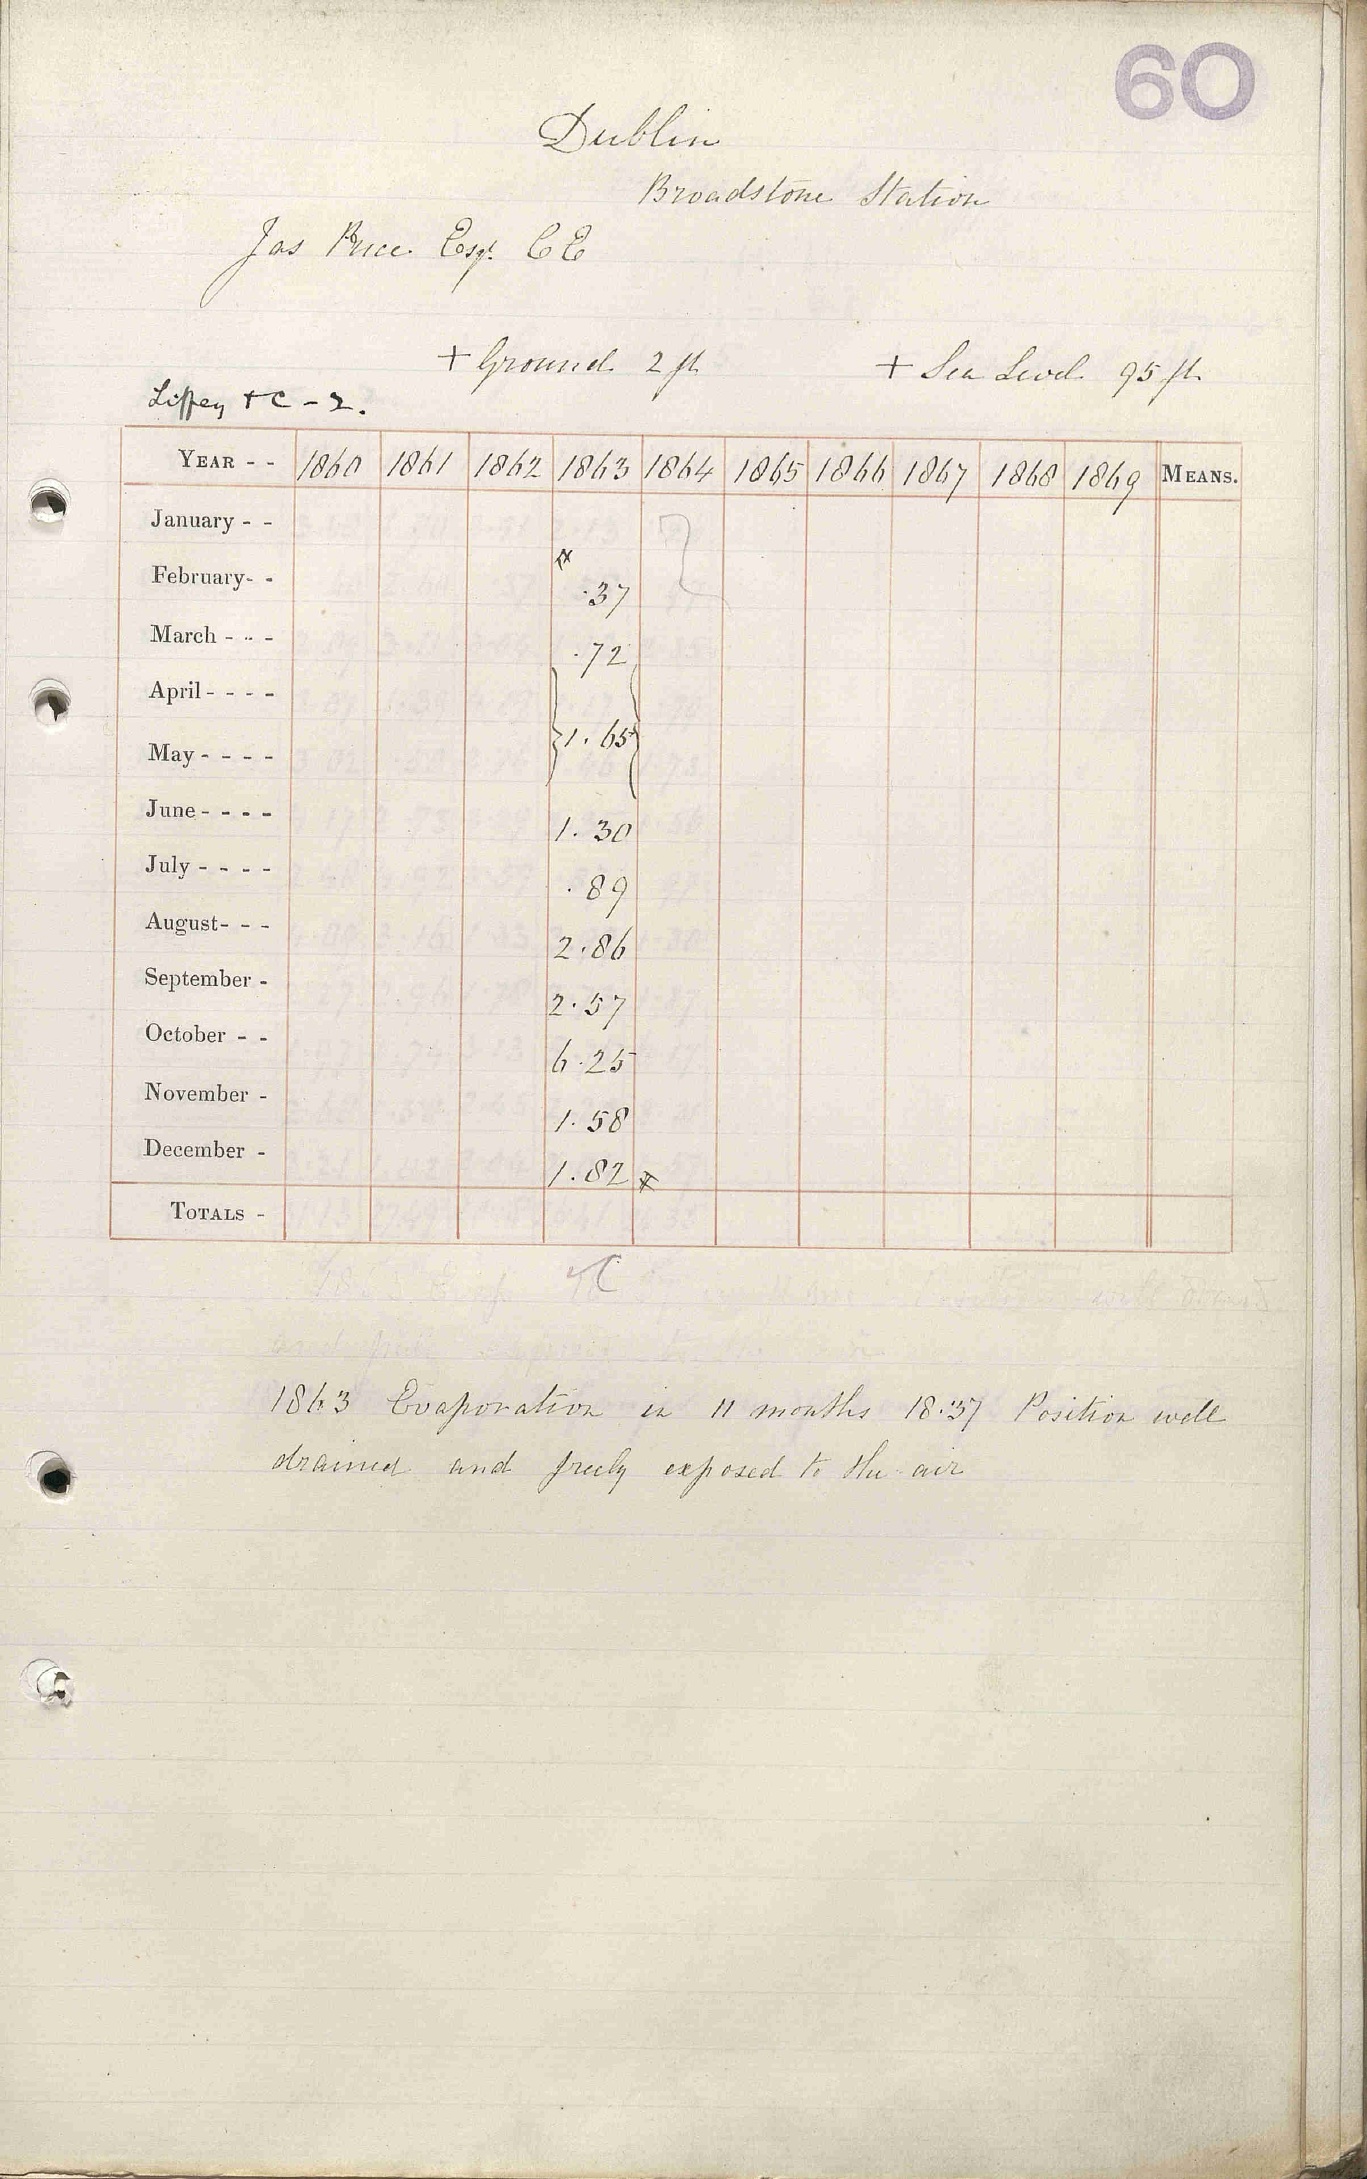 60
Dublin
Broadstone Station
Jas Price Esqr. C E
+ Ground 2 ft + Sea Level 95 ft
Liffey + C - 2.
YEAR - - 1860 1861 1862 1863 1864 1865 1866 1867 1868 1869 MEANS.
January - -
February - - .37
March - - - .72
April - - - -
1.65
May - - - -
June - - - - 1.30
July - - - - .89
August - - - 2.86
September - 2.57
October - - 6.25
November - 1.58
December - 1.82
TOTALS -
1863 Evaporation in 11 months 18.37 Position well
drained and freely exposed to the air